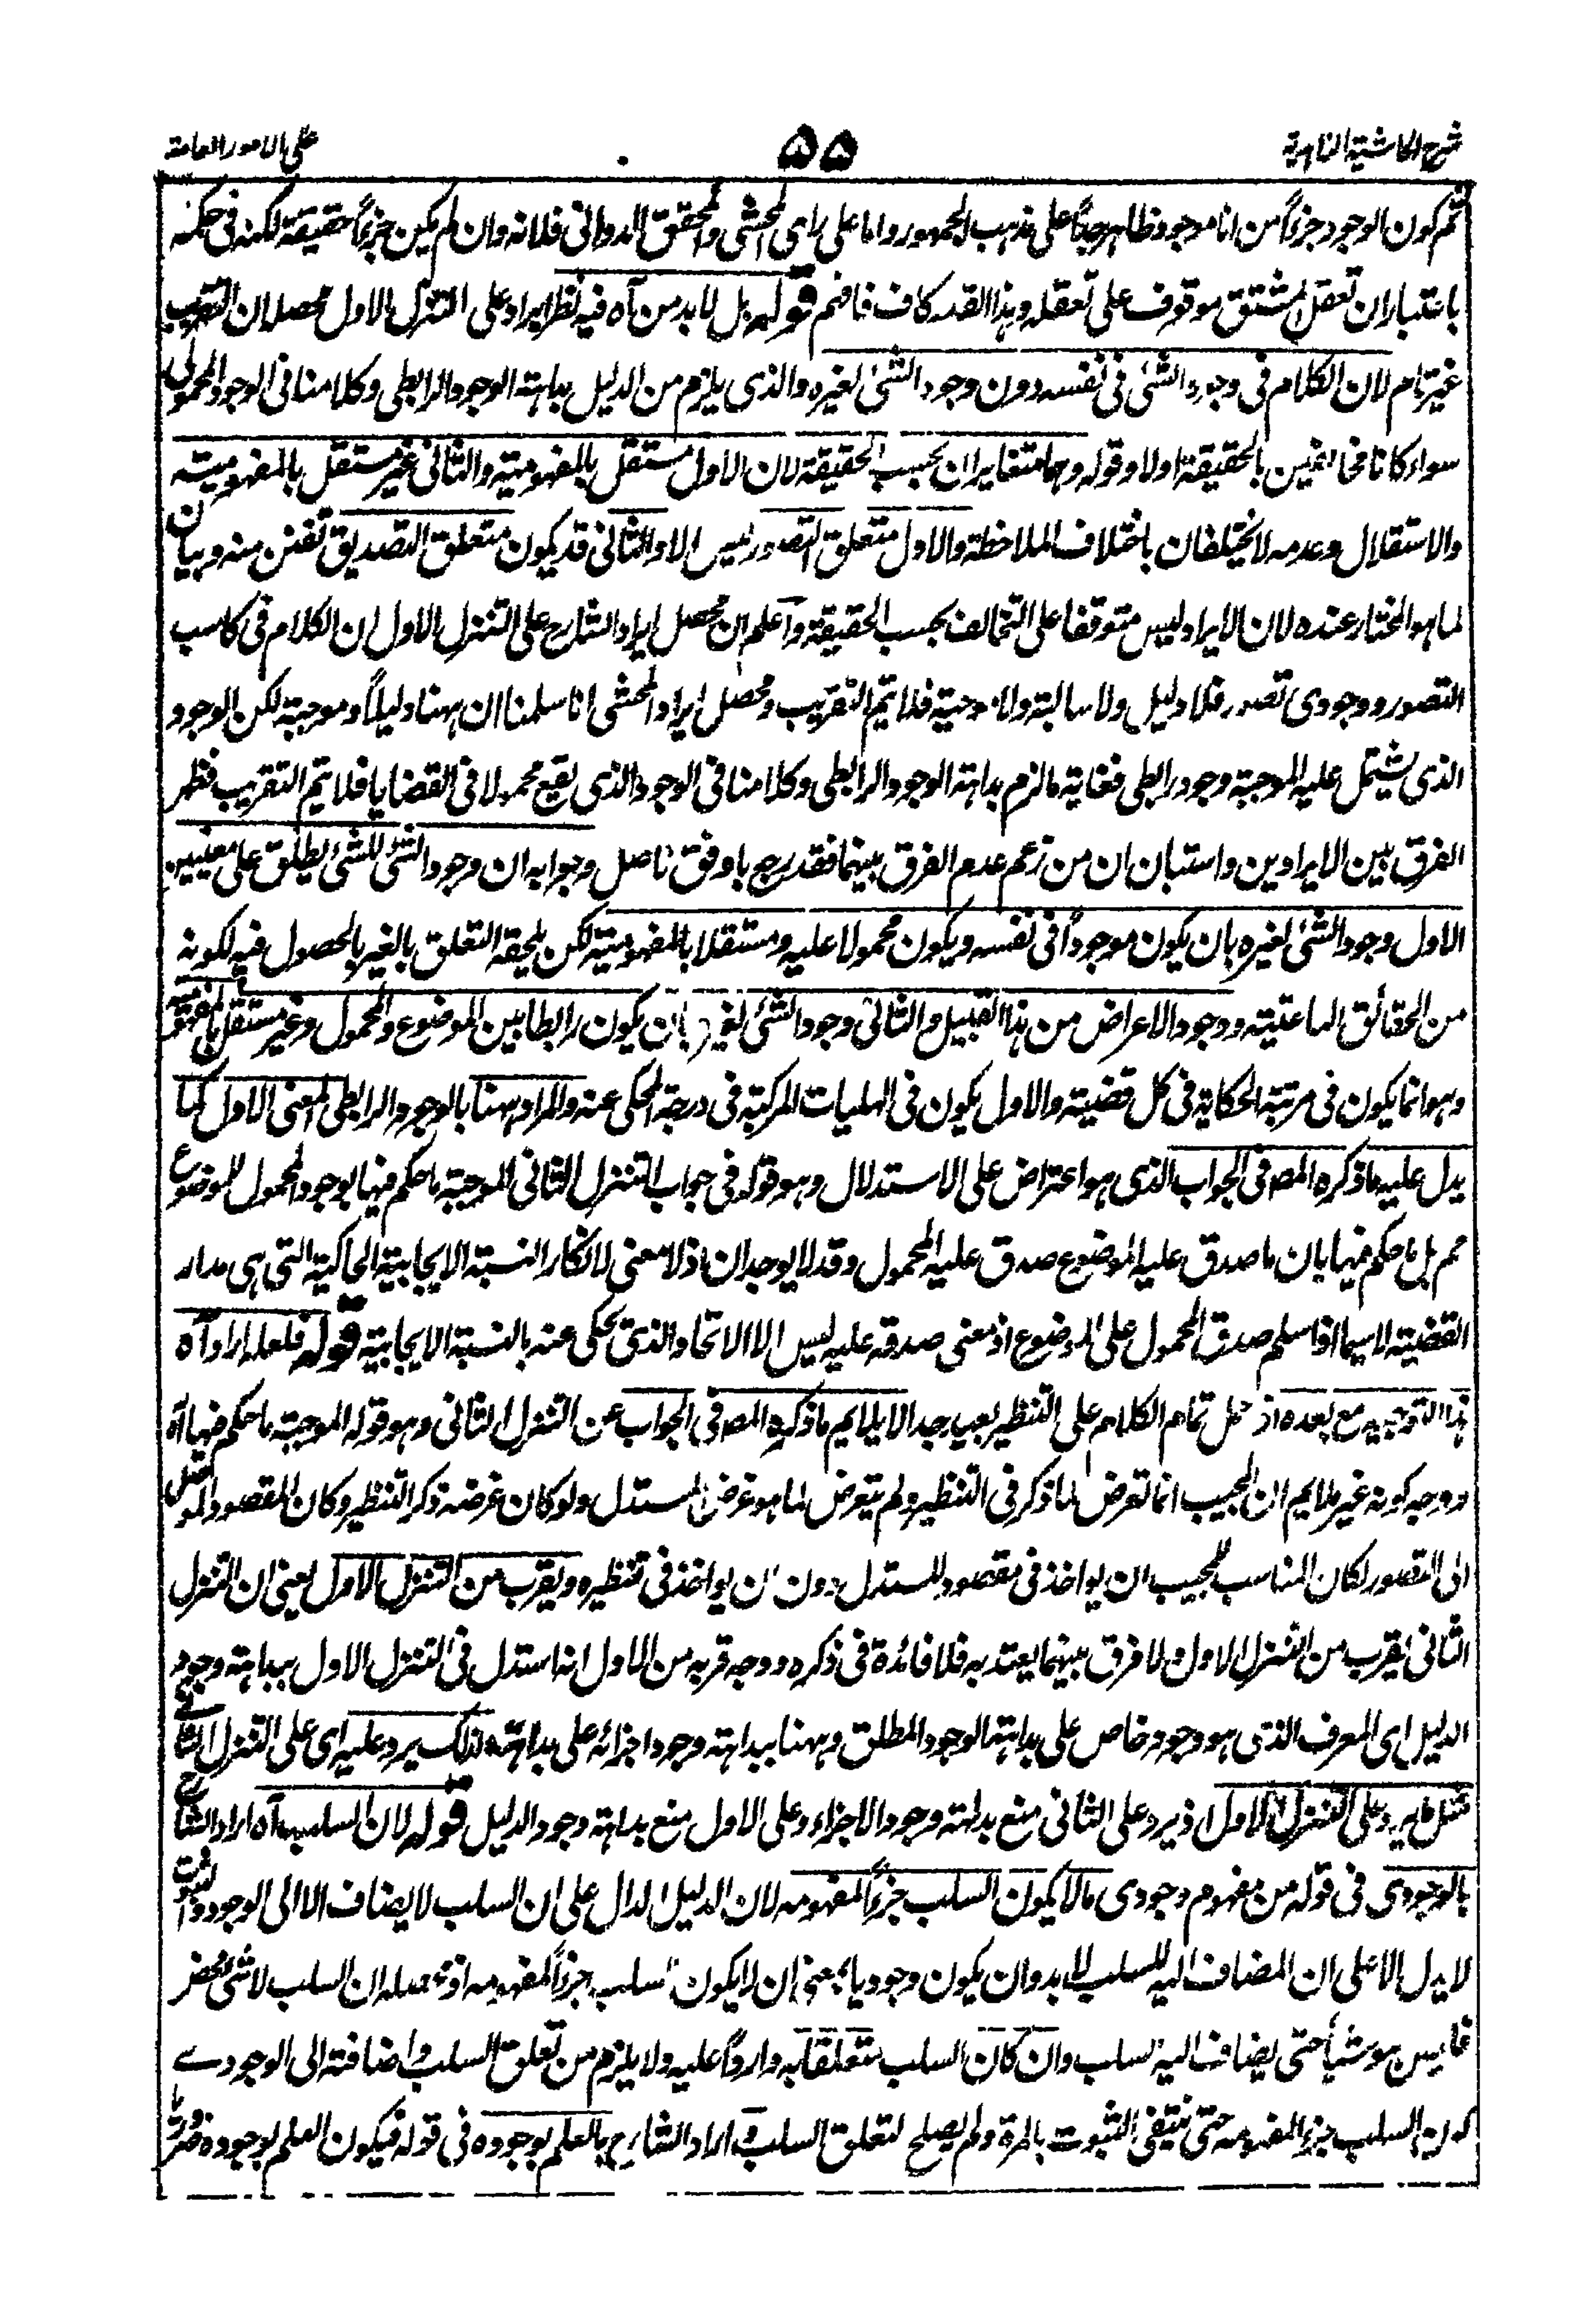 شرح الحاشية الزاهدية
۵۵
على الامور العامة
ثم كون الوجود جزءاً من انا موجود ظاهر جداً على مذهب الجمهور واما على راى المحشى والمحقق الدوانى فلانه وان لم يكن جزءاً حقيقة لكنه فى حكمه
باعتبار ان تعقل المشتق موقوف على تعقله وهذا القدر كاف فافهم قوله بل لا بد من آه فيه نظر ايراد على التنزل الاول محصله ان التقريب
غير تام لان الكلام فى وجود الشئ فى نفسه دون وجود الشئ لغيره والذى يلزم من الدليل بداهة الوجود الرابطى وكلامنا فى الوجود المحمولى
سواء كانا متخالفين بالحقيقة اولا وقوله وهما متغايران بحسب الحقيقة لان الاول مستقل بالمفهومية والثانى غير مستقل بالمفهومية
والاستقلال وعدمه لا يختلفان باختلاف الملاحظة والاول متعلق التصور ليس الا والثانى قد يكون متعلق التصديق تفنن منه وبيان
لما هو المختار عنده لان الايراد ليس متوقفا على التخالف بحسب الحقيقة واعلم ان محصل ايراد الشارح على التنزل الاول ان الكلام فى كاسب
التصور ووجودى تصور فلا دليل ولا سالبة ولا موجبة فلا يتم التقريب ومحصل ايراد المحشى انا سلمنا ان ههنا دليلاً وموجبة لكن الوجود
الذى يشتمل عليه الموجبة وجود رابطى فغاية ما لزم بداهة الوجود الرابطى وكلامنا فى الوجود الذى يقع محمولا فى القضايا فلا يتم التقريب فظهر
الفرق بين الايرادين واستبان ان من زعم عدم الفرق بينهما فقد رجع باوفق ناصل وجوابه ان وجود الشئ للشئ يطلق على معنيين
الاول وجود الشئ لغيره بان يكون موجوداً فى نفسه ويكون محمولا عليه ومستقلا بالمفهومية لكن يلحقه التعلق بالغير بالحصول فيه لكونه
من الحقائق الناعتية ووجود الاعراض من هذا القبيل والثانى وجود الشئ لغيره بان يكون رابطا بين الموضوع والمحمول وغير مستقل بالمفهومية
وهو انما يكون فى مرتبة الحكاية فى كل قضية والاول يكون فى الهليات المركبة فى درجة المحكى عنه والمراد ههنا بالوجود الرابطى المعنى الاول كما
يدل عليه ما ذكره المصـ فى الجواب الذى هو اعتراض على الاستدلال وهو قوله فى جواب التنزل الثانى الموجبة ما حكم فيها بوجود المحمول للموضوع
مم بل ما حكم فيها بان ما صدق عليه الموضوع صدق عليه المحمول وقد لا يوجدان اذ لا معنى لانكار النسبة الايجابية الحاكية التى هى مدار
القضية لا سيما اذا سلم صدق المحمول على الموضوع اذ معنى صدقه عليه ليس الا الاتحاد الذى يحكى عنه بالنسبة الايجابية قوله فلعله اراد آه
هذا التوجيه مع بعده اذ حمل تمام الكلام على التنظير بعيد جدا لا يلايم ما ذكره المصـ فى الجواب عن التنزل الثانى وهو قوله الموجبة ما حكم فيها آه
ووجه كونه غير ملايم ان المجيب انما تعرض لما ذكر فى التنظير ولم يتعرض لما هو غرض المستدل ولو كان غرضه ذكر التنظير وكان المقصود الموصل
الى التصور لكان المناسب للمجيب ان يواخذ فى مقصود المستدل دون ان يواخذ فى تنظيره ويقرب من التنزل الاول يعنى ان التنزل
الثانى يقرب من التنزل الاول ولا فرق بينهما يعتد به فلا فائدة فى ذكره ووجه قربه من الاول انه استدل فى التنزل الاول ببداهة وجود
الدليل اى المعرف الذى هو وجود خاص على بداهة الوجود المطلق وههنا ببداهة وجود اجزائه على بداهته ولذلك يرد عليه اى على التنزل الثانى
مثل ما يرد على التنزل الاول اذ يرد على الثانى منع بداهة وجود الاجزاء وعلى الاول منع بداهة وجود الدليل قوله لان السلب آه اراد الشارح
بالوجودى فى قوله من مفهوم وجودى ما لا يكون السلب جزءاً لمفهومه لان الدليل الدال على ان السلب لا يضاف الا الى الوجود والثبوت
لا يدل الا على ان المضاف اليه للسلب لا بد وان يكون وجوديا بمعنى ان لا يكون السلب جزءاً لمفهومه اذ محصله ان السلب لا شئ محض
فليس هو شيأ حتى يضاف اليه السلب وان كان السلب متعلقا به وارداً عليه ولا يلزم من تعلق السلب واضافته الى الوجودى
كون السلب جزء المفهومه حتى ينتفى الثبوت بالمرة ولم يصلح لتعلق السلب واراد الشارح بالعلم بوجوده فى قوله فيكون العلم بوجوده ضروريا